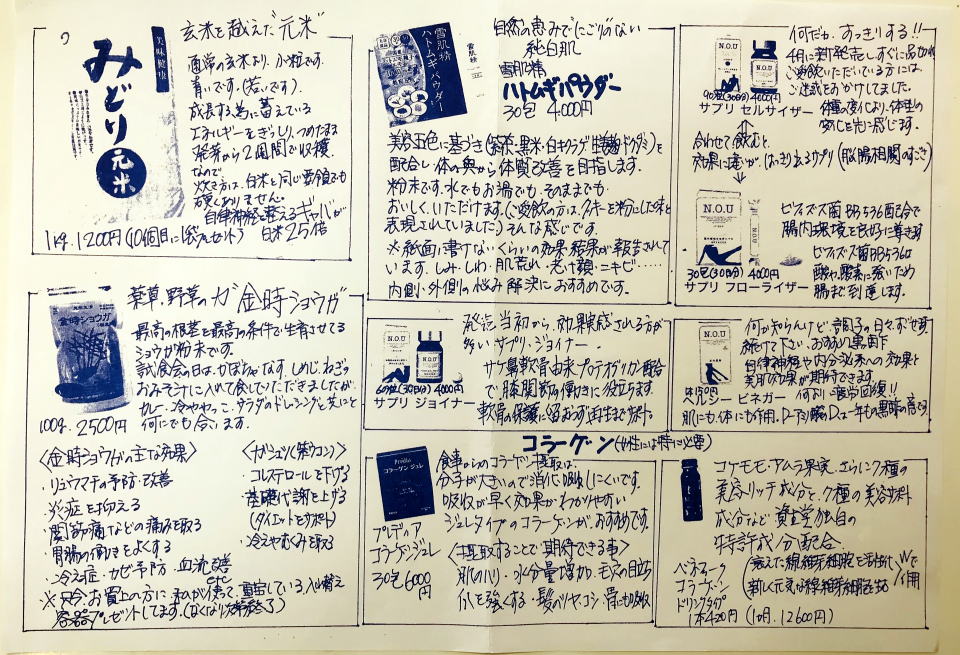 玄米を越えた"元米"
美味健康
みどり
元米
通常の玄米より、小粒です。
青いです。(若いです)。
成長する為に蓄えている
エネルギーをぎっしり、つめたまま
発芽から2週間で収穫。
なので
炊き方は、白米と同じ要領でも
硬くありません。
自律神経を整えるギャバが
1kg 1200円(10個目に1袋プレゼント) 白米25倍
自然の恵みでにごりのない
純白肌
雪肌精
ハトムギパウダー
30包 4,000円
美容五色に基づき
配合し、体の奥から体質改善を目指します。
粉末です。水でもお湯でも、そのままでも
おいしくいただけます。(ご愛飲の方は、クッキーを粉にした味と
表現されていました)そんな感じです。
※紙面に書けないくらいの効果、結果が報告されて
います。しみ・しわ・肌荒れ・老け顔・ニキビ・・・・・
内側・外側の悩み解決におすすめです。
何だか、すっきりする!!
4月に新発売し、すぐに品切れ
ご愛飲いただいている方には、
ご迷惑をおかけしました。
体重の変化より、体型の
変化を先に感じます。
N.O.U
90粒(30日分) 4000円
サプリ セルサイザー
合わせて飲むと
効果に違いが、はっきり出るサプリ(脳腸相関のすごさ)
N.O.U
30包(30日分) 4000円
サプリ フローライザー
ビフィズス菌BB536配合で
腸内環境を良好に導きます
ビフィズス菌BB536は
酸や、酸素に強いため
腸まで到達します。
薬草・野草のガ 金時ショウガ
金時ショウガ
最高の根茎を最高の条件で生育させてる
ショウガ粉末です。
試食会の日は、かぼちゃ、なす、しめじ、ねぎの
おみそ汁に入れて食していただきましたが、
カレー、冷ややっこ、サラダのドレッシングと共にと
何にでも合います。
100g 2500円
<金時ショウガの主な効果>
・リュウマチの予防・改善
・炎症を抑える
・関節痛などの痛みを取る
・胃腸の働きをよくする
・冷え症・カゼ予防・血流改善
etc
<ガジュツ(紫ウコン)>
・コレステロールを下げる
・基礎代謝を上げる
(ダイエットをサポート)
・冷えやむくみを取る
※只今、お買上の方に、私が使って、重宝している、入れ替え
容器プレゼントしてます。(なくなり次第終了)
発売当初から、効果実感される方が
多い サプリ・ジョイナー。
N.O.U
60粒(30日分) 4000円
サプリ ジョイナー
サケ鼻軟骨由来プロテオグリカン配合
で、膝関節の働きに役立ちます。
軟骨の保護に留まらず、再生までサポート
何か知らんけど、調子の日々。おぜひ
続けて下さい。おすすめ黒酢
自律神経や内分泌系への効果と
美肌効果が期待できます
何より、疲労回復!!
N.O.U
ヘルシー ビネガー
肌にも、体にも作用。
コラーゲン(女性には特に必要)
Prodia
コラーゲン ジュレ
プレディア
コラーゲンジュレ
30包 6000円
食事からのコラーゲン摂取は、
分子が大きいので消化吸収しにくいです。
吸収が早く効果がわかりやすい
ジュレタイプのコラーゲンが、おすすめです。
<摂取することで期待できる事>
肌のハリ・水分量増加・毛穴の目立ち
爪を強くする・髪のツヤ、コシ・骨にも吸収
コケモモ・アムラ果実、さらに7種の
美容リッチ成分と、7種の美容サポート
成分など 資生堂独自の
特許成分配合。
衰えた線維芽細胞を活性化
新しく元気な線維芽細胞を
Wで作用
ベネフィーク
コラーゲン
ドリンクタイプ
1本420円 (1ヶ月 12600円)